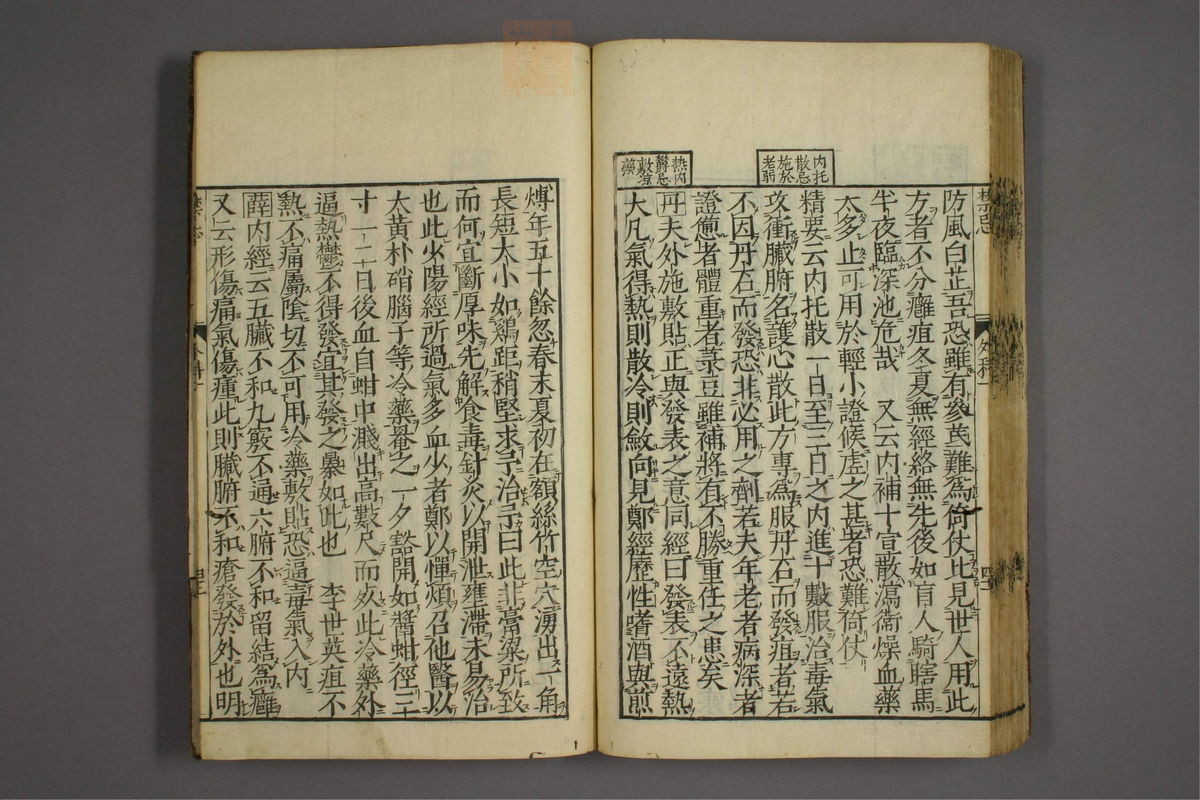 内托
散忌
施於
老弱
熱内
欝忌
敷凉
藥
禁忌
外科一
防風白芷吾恐雖有參芪難爲倚仗比見世人用此
方者不分癰疽冬夏無經絡無先後如盲人騎瞎馬
半夜臨深池危哉 又云内補十宣散瀉衛燥血藥
太多止可用於輕小證候虛之甚者恐難倚仗
精要云内托散一日至三日之内進十數服治毒氣
攻衝臟腑名護心散此方專爲服丹石而發疽者若
不因丹石而發恐非必用之劑若夫年老者病深者
證憊者體重者菉豆雖補將有不勝重任之患矣
丹夫外施敷貼正與發表之意同經曰發表不遠熱
大凡氣得熱則散冷則斂向見鄭經歷性嗜酒與煎
煿年五十餘忽春末夏初在額絲竹空穴湧出一角
長短大小如鷄距稍堅求予治予曰此非膏粱所致
而何宜斷厚味先解食毒針灸以開泄壅滯未易治
也此少陽經所過氣多血少者鄭以憚煩召他醫以
大黃朴硝腦子等冷藥罨之一夕豁開如醬蚶徑三
寸一二日後血自蚶中濺出高數尺而死此冷藥外
逼熱鬱不得發宜其發之暴如此也 李世英疽不
熱不痛屬陰切不可用冷藥敷貼恐逼毒氣入内
薛内經云五臟不和九竅不通六腑不和留結爲癰
又云形傷痛氣傷腫此則臟腑不和瘡發於外也明